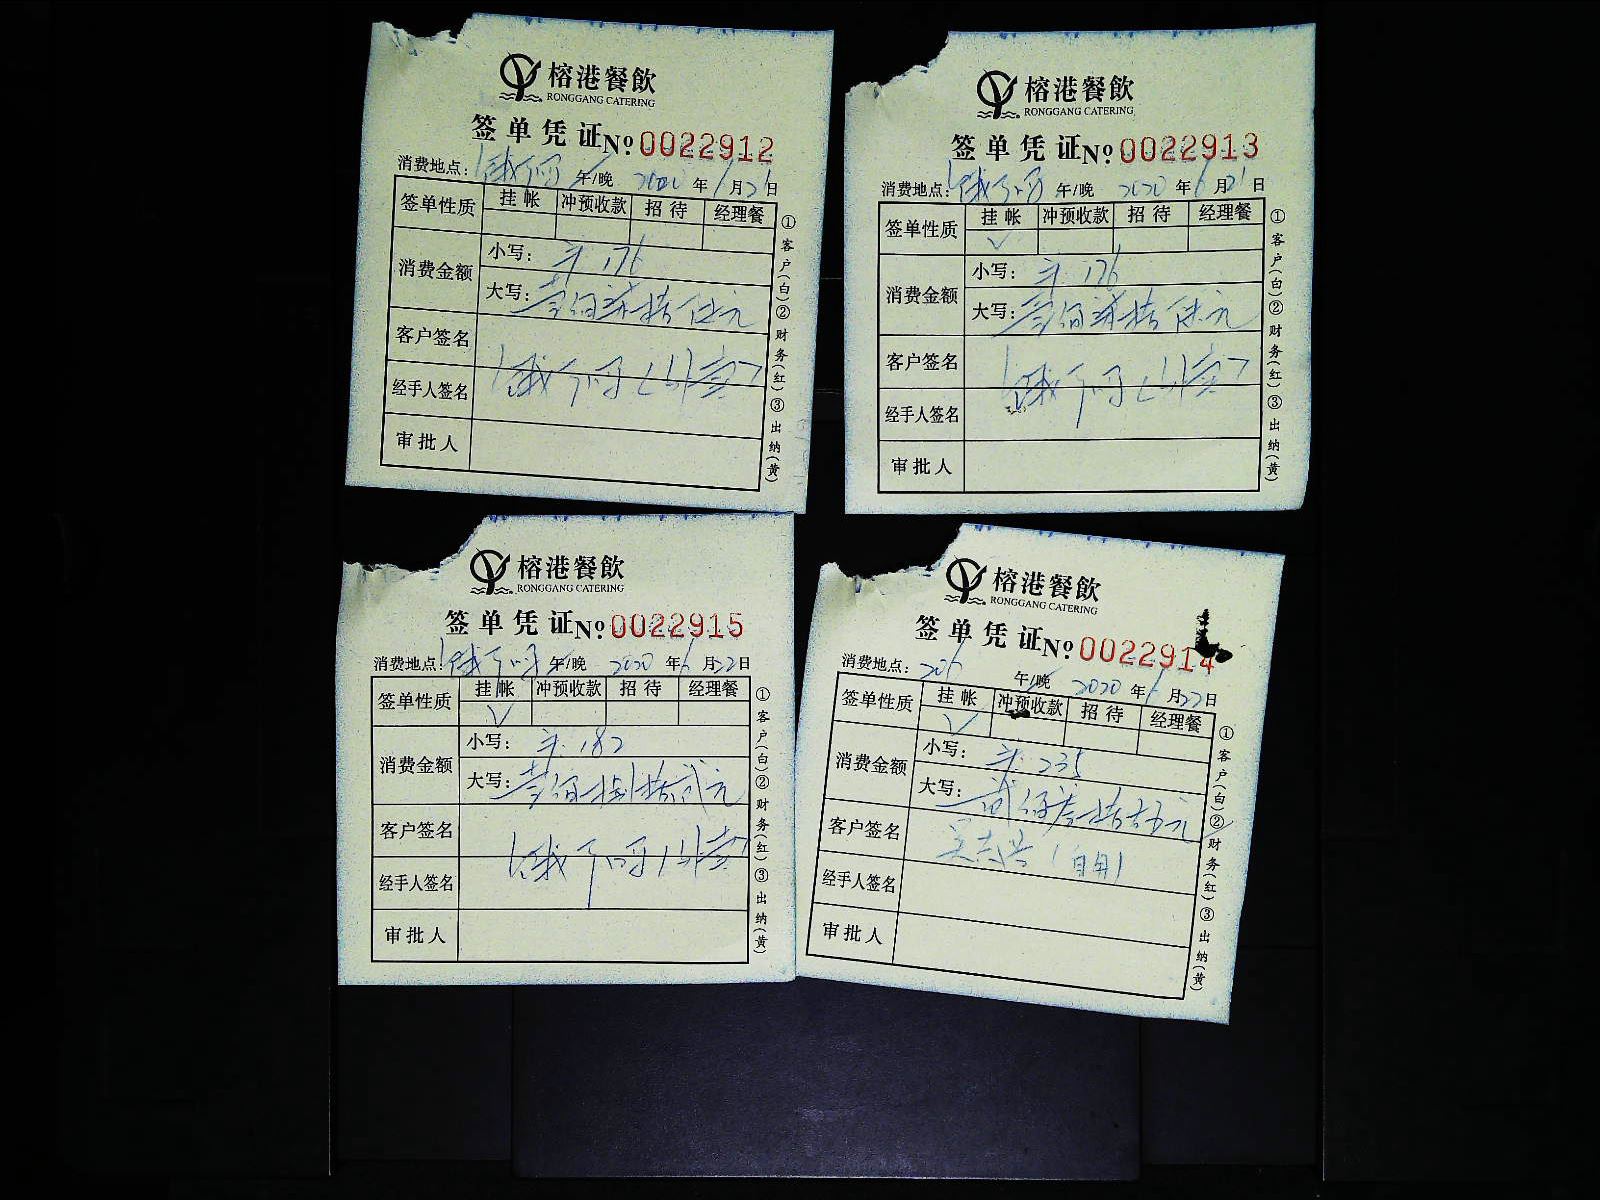 榕港餐飲
RONGGANG CATERING
签单凭证 №0022912
消费地点：饿了吗 午/晚 2020年6月21日
签单性质 挂帐 冲预收款 招待 经理餐
消费金额 小写：¥176
大写：壹佰柒拾陆元
客户签名 饿了吗(外卖)
经手人签名
审批人
①客户(白)②财务(红)③出纳(黄)
榕港餐飲
RONGGANG CATERING
签单凭证 №0022913
消费地点：饿了吗 午/晚 2020年6月21日
签单性质 挂帐 冲预收款 招待 经理餐
✓
消费金额 小写：¥176
大写：壹佰柒拾陆元
客户签名 饿了吗(外卖)
经手人签名
审批人
①客户(白)②财务(红)③出纳(黄)
榕港餐飲
RONGGANG CATERING
签单凭证 №0022915
消费地点：饿了吗 午/晚 2020年6月22日
签单性质 挂帐 冲预收款 招待 经理餐
✓
消费金额 小写：¥182
大写：壹佰捌拾贰元
客户签名 饿了吗(外卖)
经手人签名
审批人
①客户(白)②财务(红)③出纳(黄)
榕港餐飲
RONGGANG CATERING
签单凭证 №0022914
消费地点：206 午/晚 2020年6月22日
签单性质 挂帐 冲预收款 招待 经理餐
✓
消费金额 小写：¥235
大写：贰佰叁拾伍元
客户签名 吴志兴(自用)
经手人签名
审批人
①客户(白)②财务(红)③出纳(黄)